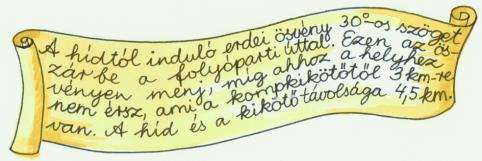 A hídtól induló erdei ösvény 30°-os szöget
zár be a folyóparti úttal. Ezen az ös-
vényen menj, míg ahhoz a helyhez
nem érsz, ami a kompkikötőtől 3 km-re
van. A híd és a kikötő távolsága 4,5 km.